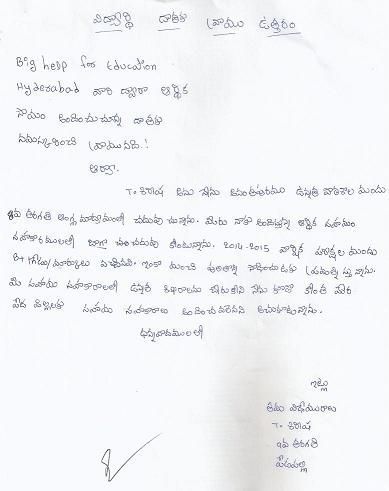 విద్యార్థి దాతకు వ్రాయు ఉత్తరం
Big help for Education
Hyderabad వారి ద్వారా ఆర్థిక
సాయం అందించుచున్న దాతకు
నమస్కరించి వ్రాయునది.!
ఆర్యా.
T. శిరీష అను నేను
9వ తరగతి ఆంగ్ల మాధ్యమంలో చదువు చున్నాను. మీరు నాకు అందిస్తున్న ఆర్థిక సహాయ
సహకారములతో బాగా చదువు కుంటున్నాను. 2014-2015 వార్షిక పరీక్షల యందు
B+ గ్రేడు/మార్కులు వచ్చినవి. ఇంకా మంచి ఫలితాల్ని సాధించుటకు ప్రయత్నిస్తున్నాను.
మీ సహాయ సహకారాలతో ఉన్నత శిఖరాలను చేరుకుని నేను కూడా కొంత మంది
పేద పిల్లలకు సహాయ సహకారాలు అందించగలనని అనుకుంటున్నాను.
ధన్యవాదములతో
ఇట్లు
తమ విధేయురాలు
T. శిరీష
9వ తరగతి